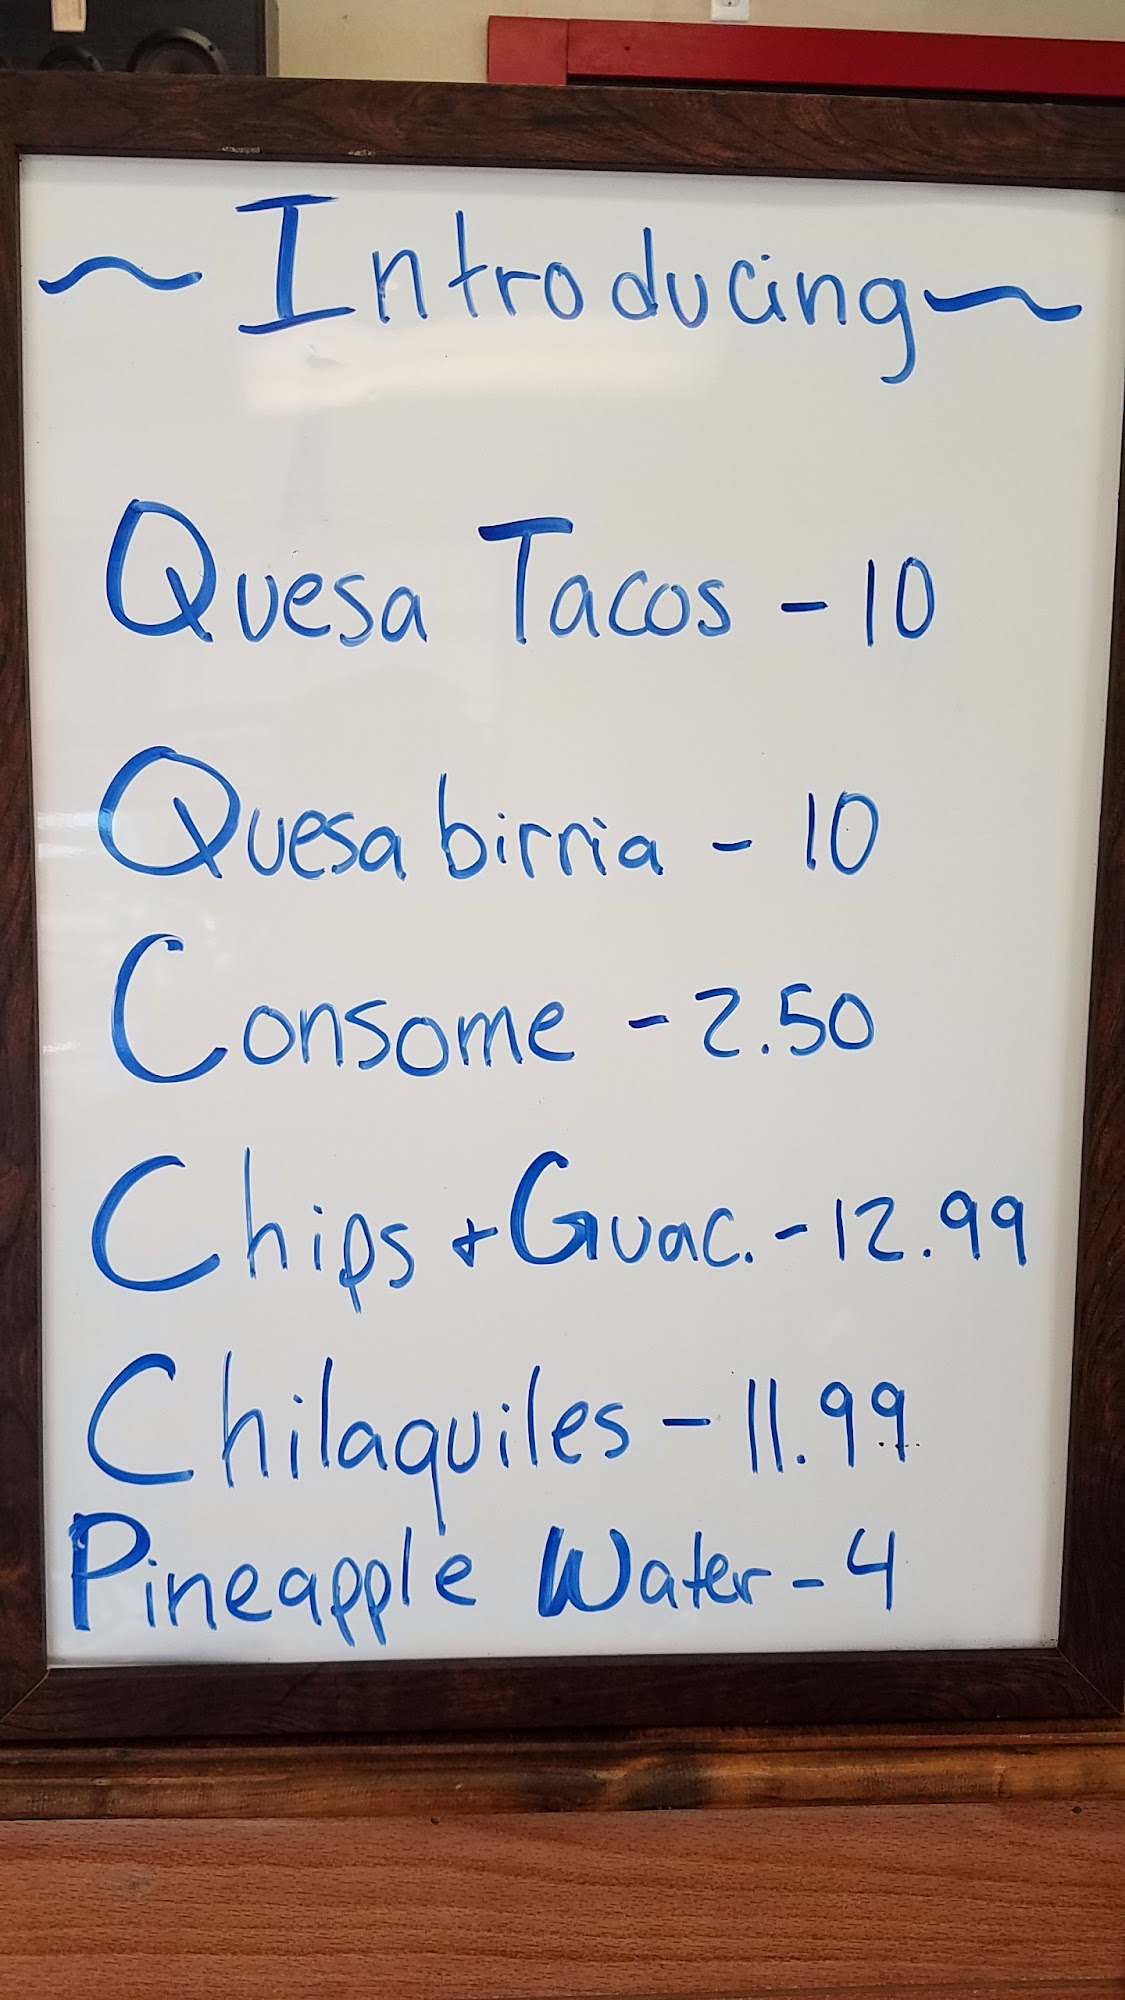 ~ Introducing ~
Quesa Tacos - 10
Quesabirria - 10
Consome - 2.50
Chips + Guac. - 12.99
Chilaquiles - 11.99
Pineapple Water - 4